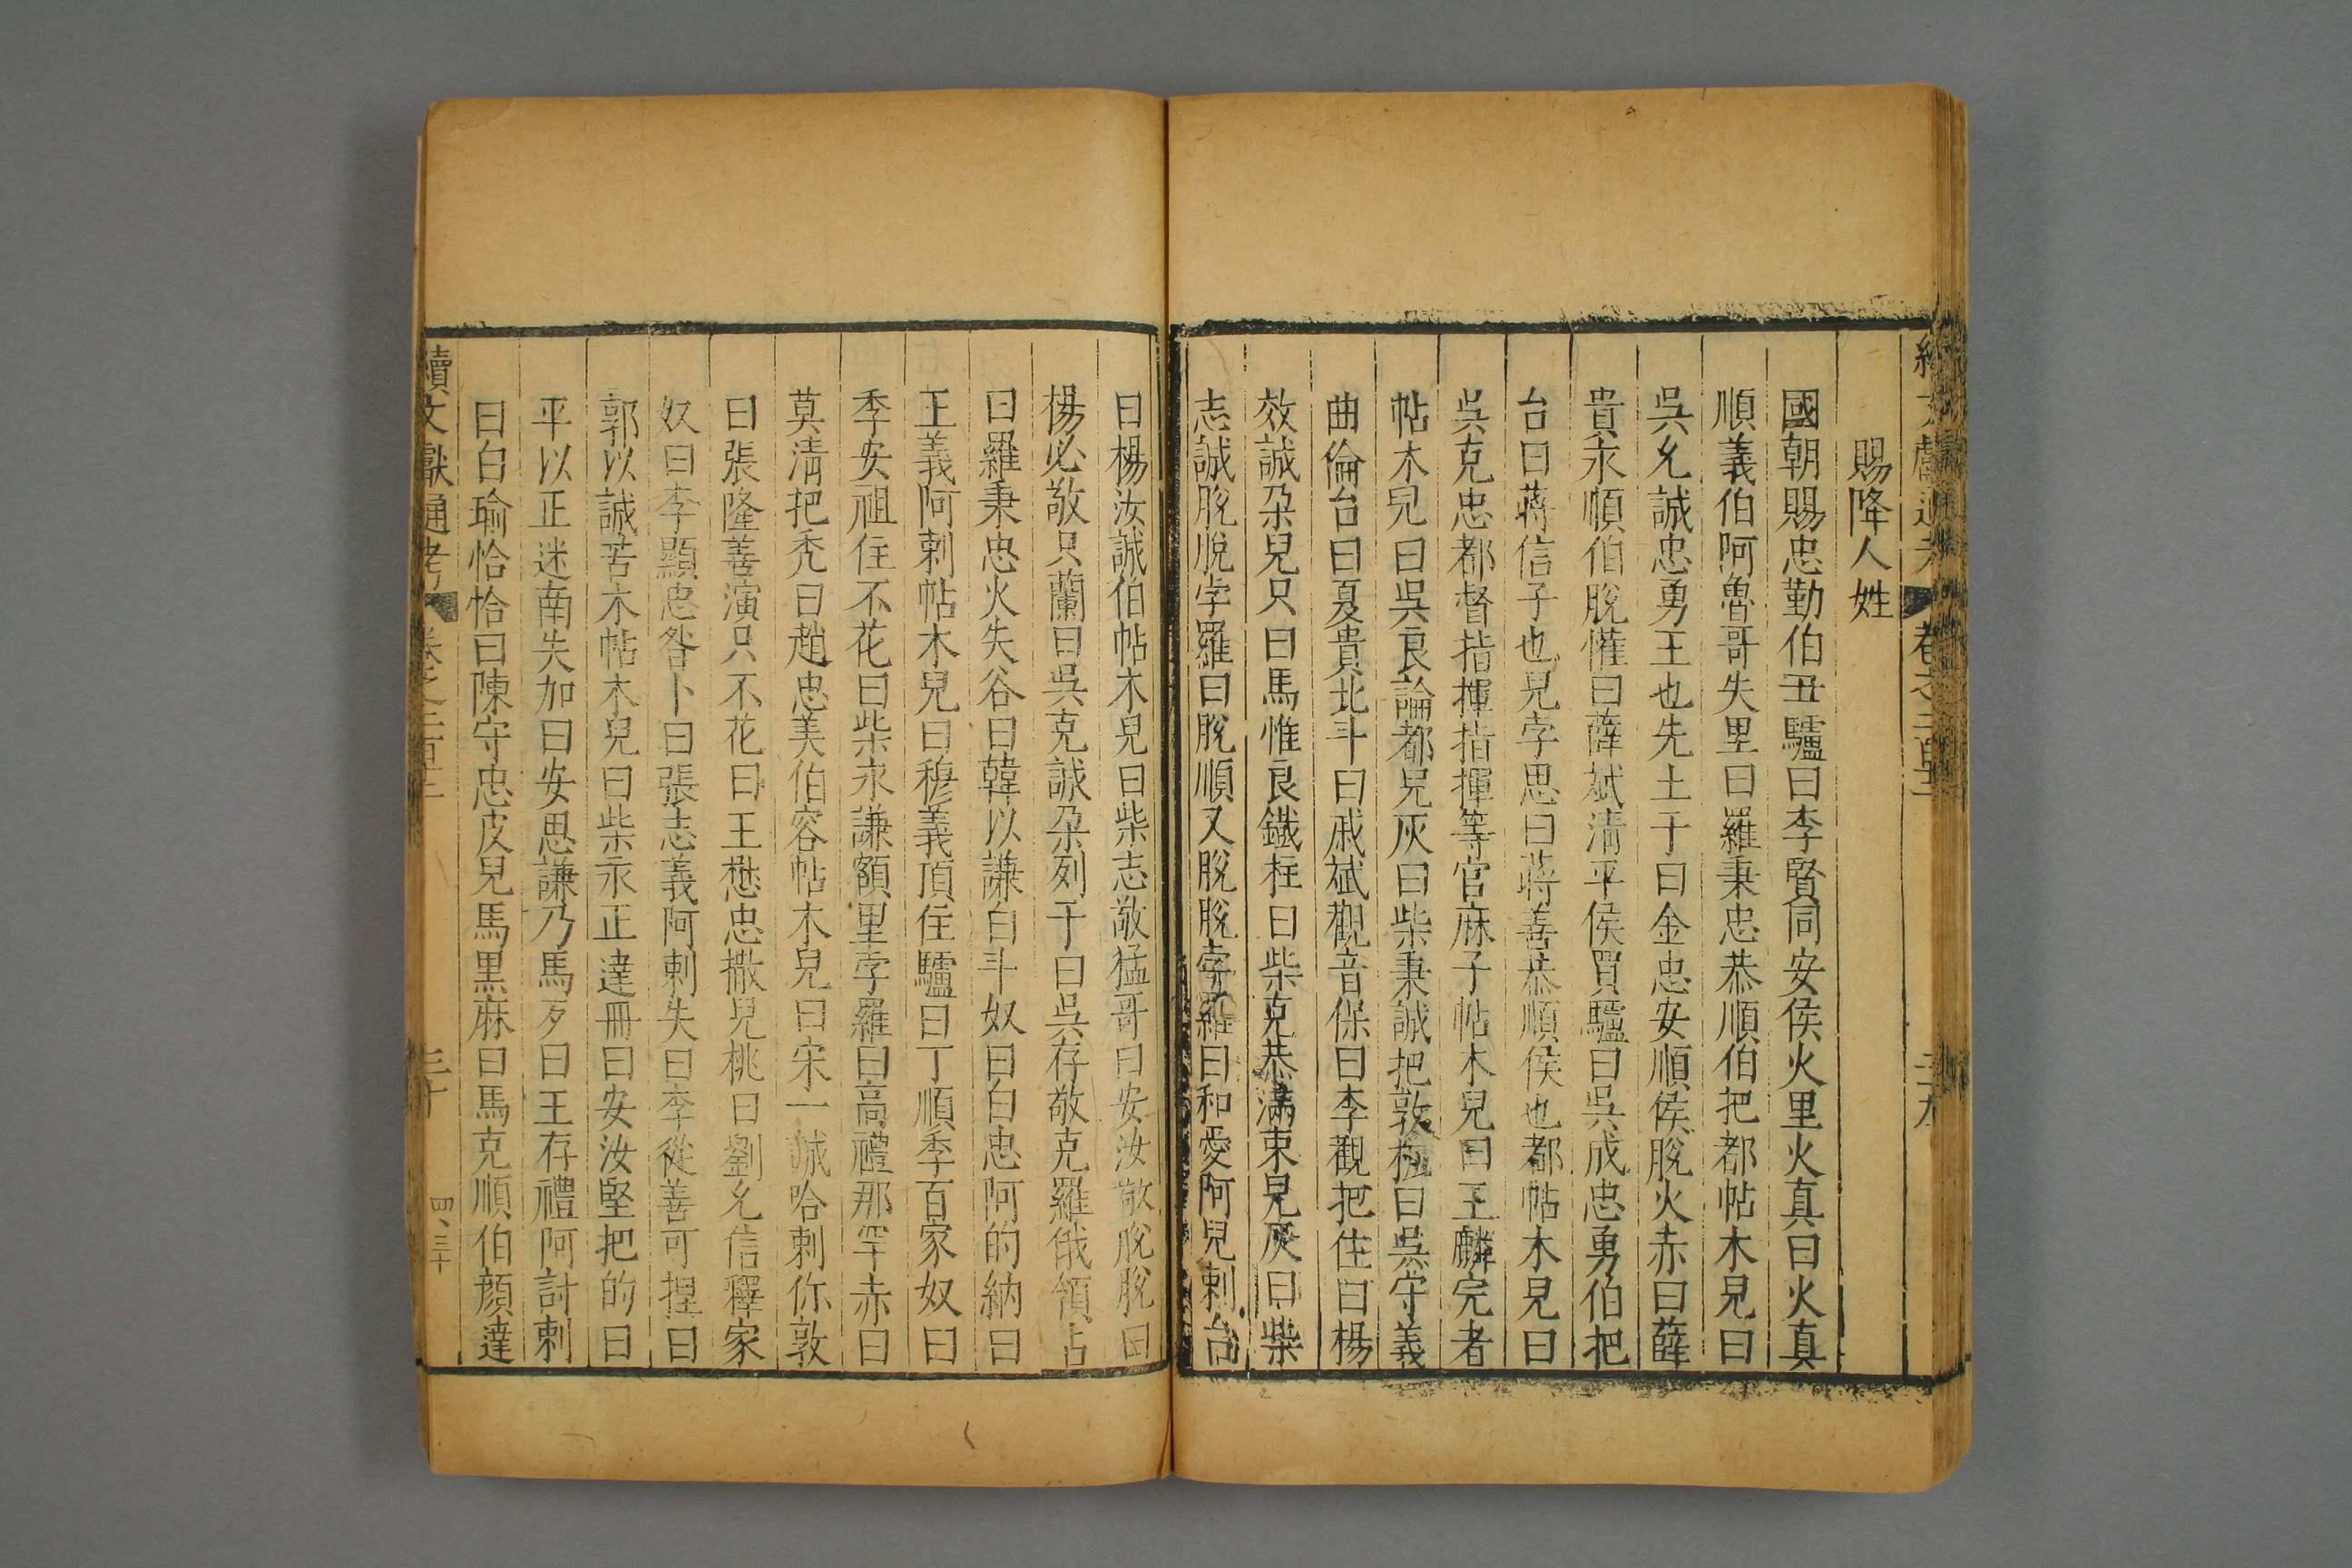 賜降人姓
國朝賜忠勤伯丑驢曰李賢同安侯火里火真曰火真
順義伯阿魯哥失里曰羅秉忠恭順伯把都帖木兒曰
吳允誠忠勇王也先土干曰金忠安順侯脫火赤曰薛
貴永順伯脫懽曰薛斌清平侯買驢曰吳成忠勇伯把
台曰蔣信子也兒孛思曰蔣善恭順侯也都帖木兒曰
吳克忠都督指揮指揮等官麻子帖木兒曰王麟完者
帖木兒曰吳良論都兒灰曰柴秉誠把敦曰吳守義
曲倫台曰夏貴北斗曰戚斌觀音保曰李觀把住曰楊
效誠朶兒只曰馬惟良鐵柱曰柴克恭滿束兒灰曰柴
志誠脫脫孛羅曰脫順又脫脫孛羅曰和愛阿兒剌台
曰楊汝誠伯帖木兒曰柴志敬猛哥曰安汝敬脫脫曰
楊必敬只蘭曰吳克誠朶列干曰吳存敬克羅俄領占
曰羅秉忠火失谷曰韓以謙白斗奴曰白忠阿的納曰
王義阿剌帖木兒曰穆義頂住驢曰丁順季百家奴曰
季安祖住不花曰柴永謙額里孛羅曰高禮那罕赤曰
莫清把禿曰趙忠美伯容帖木兒曰宋一誠哈剌你敦
曰張隆善演只不花曰王懋忠撒兒桃曰劉允信釋家
奴曰李顯忠咎卜曰張志義阿剌失曰李從善可捏曰
郭以誠苦木帖木兒曰柴永正達冊曰安汝堅把的曰
平以正迷南失加曰安思謙乃馬歹曰王存禮阿討剌
曰白瑜恰恰曰陳守忠皮兒馬黑麻曰馬克順伯顏達
續文獻通考
四、三十